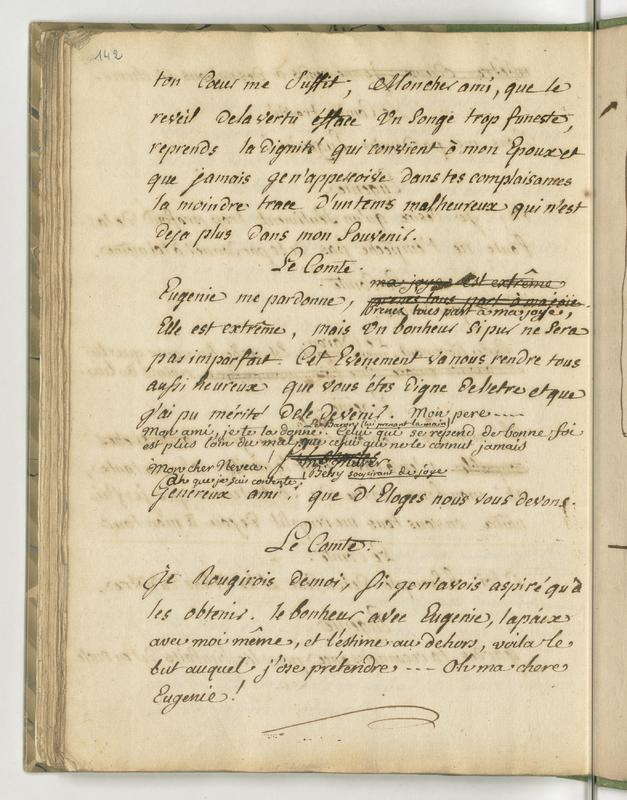 142
ton Cœur me Suffit, Moncher ami, que le
reveil dela vertu efface Un Songe trop funeste,
reprends la Dignité qui convient à mon Epoux et
que jamais je n'apperçoive dans tes complaisances
la moindre trace D'un tems malheureux qui n'est
deja plus Dans mon Souvenir.
Le Comte.
ma joye est extrême
Eugenie me pardonne, prenés tous part à ma joie.
Prenés tous part à ma joye,
Elle est extrême, mais Un bonheur Si pur ne Sera
pas imparfait. Cet Evenement va nous rendre tous
aussi heureux que vous étes Digne De l'etre et que
j'ai pu mérité De le devenir. Mon pere ----
Le Baron (lui prenant la main)
Mon ami, je te la donne. Celui qui se repend de bonne foi
est plus loin du mal, que celui qui ne le connut jamais
Mon cher Nevea!
Ah que je suis contente! Betsy soupirant de joye
Genereux ami! que D'Eloges nous vous devons.
Le Comte.
Je Rougirois De moi, Si je n'avois aspiré qu'à
les obtenir. le bonheur avec Eugenie, la paix
avec moi même, et l'estime au dehors, voila le
but auquel j'ose prétendre --- Oh ma chere
Eugenie!